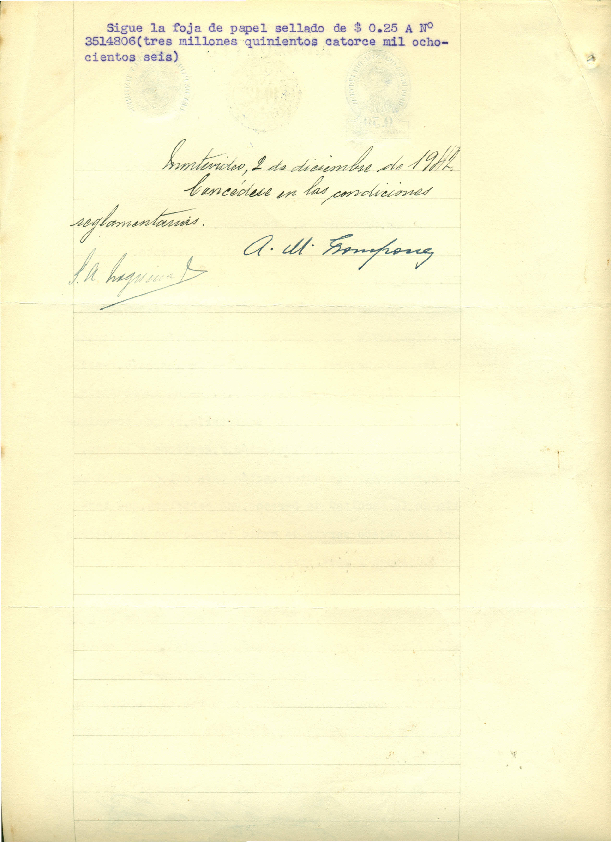 Sigue la foja de papel sellado de $ 0.25 A Nº
3514806(tres millones quinientos catorce mil ocho-
cientos seis)
Montevideo, 2 de diciembre de 1942.
Concédese en las condiciones
reglamentarias.
A. M. Grompone
S. A.